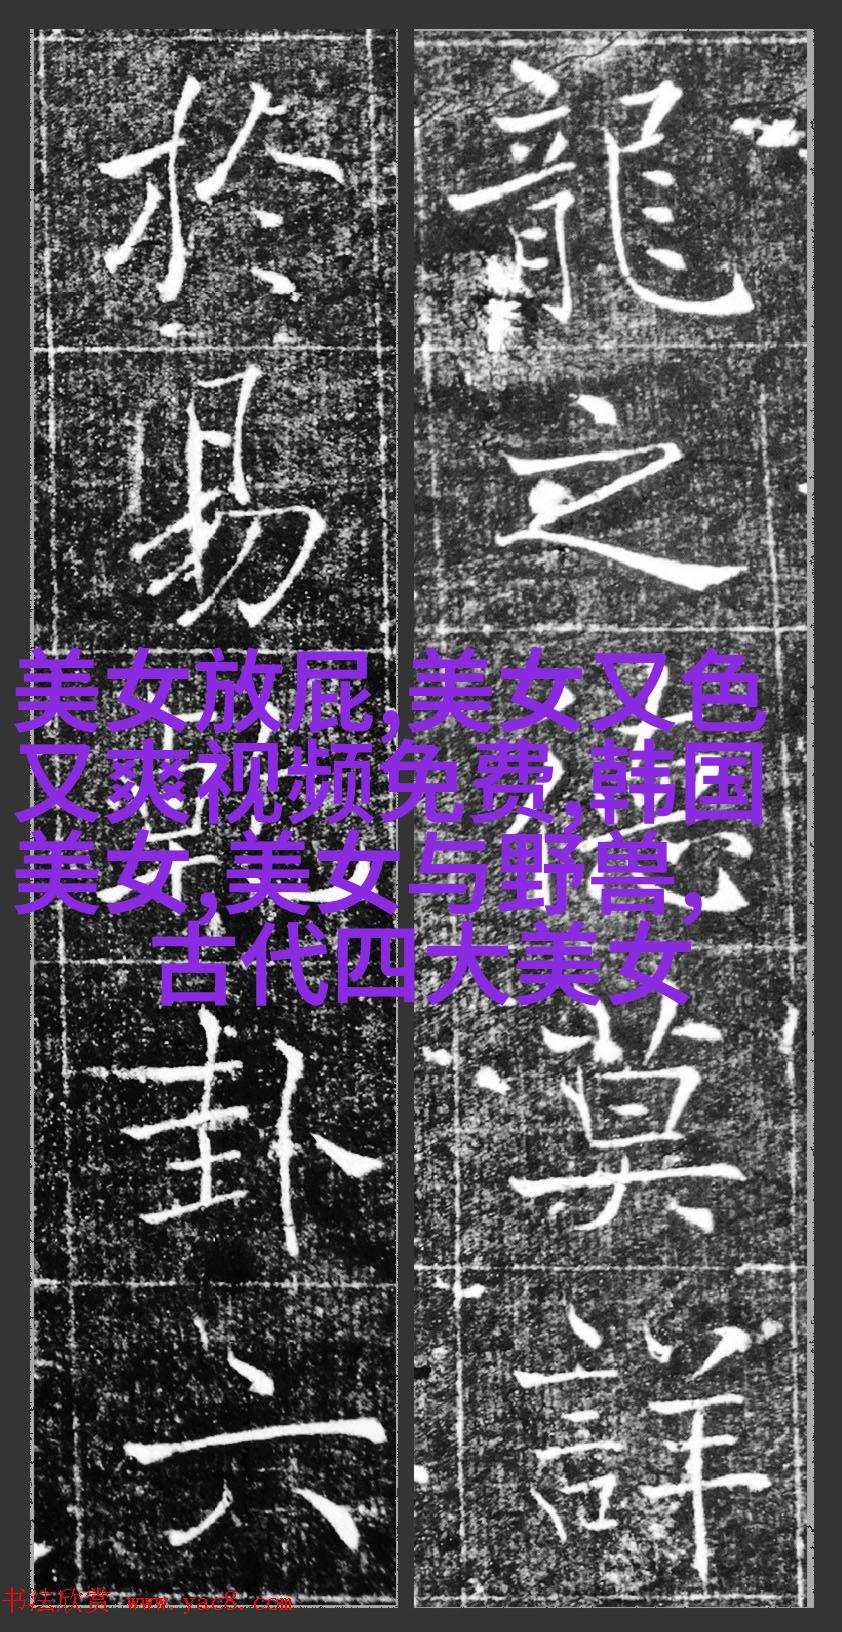 龍之德莫詳
於易乾卦六
美女放屁,美女又色
又爽视频免费,韩国
美女,美女与野兽,
古代四大美女
书法欣赏 www.yac8.com